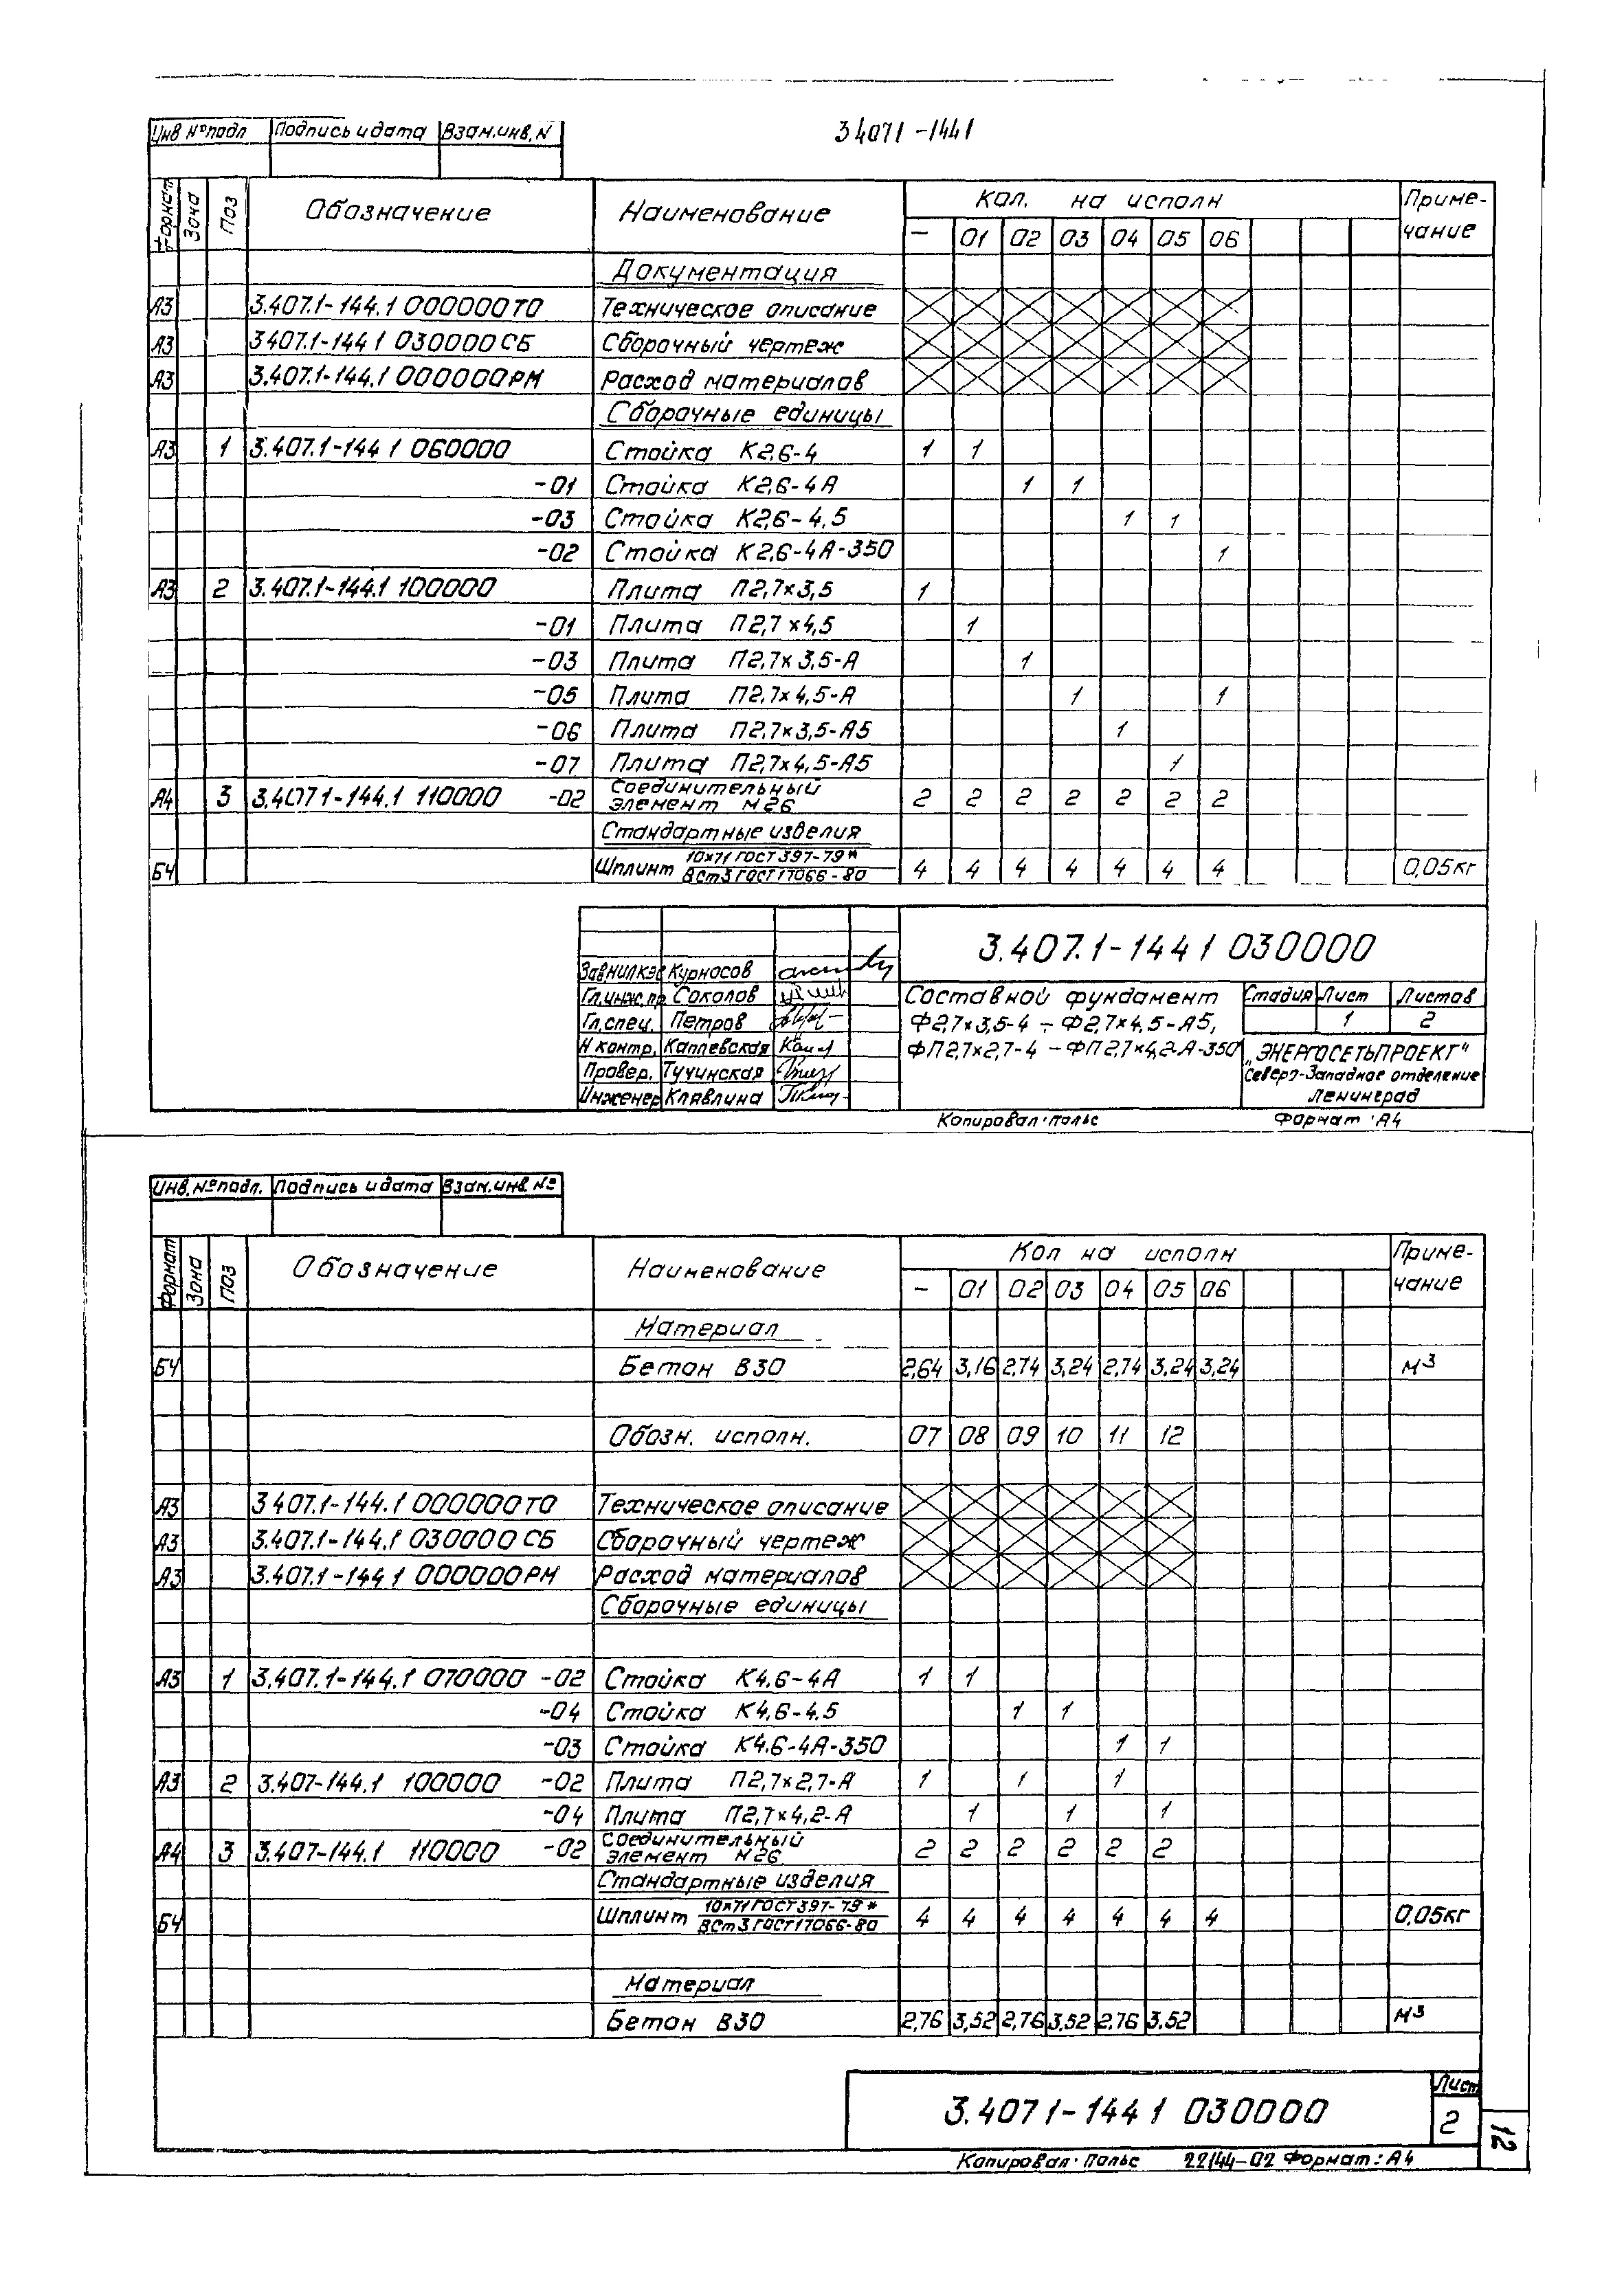 3 4071-1441
Инв № подл Подпись и дата Взам.инв.N
Формат Зона Поз Обозначение Наименование Кол. на исполн Приме-
чание
— 01 02 03 04 05 06
Документация
А3 3.407.1-144.1 000000ТО Техническое описание
А3 3407.1-144 1 030000СБ Сборочный чертеж
А3 3.407.1-144.1 000000РМ Расход материалов
Сборочные единицы
А3 1 3.407.1-144 1 060000 Стойка К2,6-4 1 1
-01 Стойка К2,6-4А 1 1
-03 Стойка К2,6-4,5 1 1
-02 Стойка К2,6-4А-350 1
А3 2 3.407.1-144.1 100000 Плита П2,7×3,5 1
-01 Плита П2,7×4,5 1
-03 Плита П2,7×3,5-А 1
-05 Плита П2,7×4,5-А 1 1
-06 Плита П2,7×3,5-А5 1
-07 Плита П2,7×4,5-А5 1
А4 3 3.4071-144.1 110000 -02 Соединительный
элемент М26 2 2 2 2 2 2 2
Стандартные изделия
БЧ Шплинт 10×71 ГОСТ 397-79*
ВСт3 ГОСТ 17066-80 4 4 4 4 4 4 4 0,05кг
3.407.1-144 1 030000
Курносов
Гл.инж.пр. Соколов
Гл.спец. Петров
Н контр. Каплевская
Провер. Тучинская
Инженер Клявлина
Составной фундамент
Ф2,7×3,5-4 ÷ Ф2,7×4,5-А5,
ФП2,7×2,7-4 – ФП2,7×4,2-А-350
Стадия Лист Листов
1 2
„ЭНЕРГОСЕТЬПРОЕКТ"
Северо-Западное отделение
Ленинград
Копировал·польс Формат·А4
Инв.№подл. Подпись и дата Взам.инв №
Формат Зона Поз Обозначение Наименование Кол на исполн Приме-
чание
– 01 02 03 04 05 06
Материал
БЧ Бетон В30 2,64 3,16 2,74 3,24 2,74 3,24 3,24 м3
Обозн. исполн. 07 08 09 10 11 12
А3 3 407.1-144.1 000000ТО Техническое описание
А3 3.407.1-144.1 030000 СБ Сборочный чертеж
А3 3.407.1-144 1 000000РМ Расход материалов
Сборочные единицы
А3 1 3.407.1-144.1 070000 -02 Стойка К4.6-4А 1 1
-04 Стойка К4,6-4.5 1 1
-03 Стойка К4.6-4А-350 1 1
А3 2 3.407-144.1 100000 -02 Плита П2,7×2,7-А 1 1 1
-04 Плита П2,7×4,2-А 1 1 1
А4 3 3.407-144.1 110000 -02 Соединительный
элемент М26 2 2 2 2 2 2
Стандартные изделия
БЧ Шплинт 10×71 ГОСТ 397-79*
ВСт3 ГОСТ 17066-80 4 4 4 4 4 4 4 0,05кг
Материал
Бетон В30 2,76 3,52 2,76 3,52 2.76 3.52 м3
3.407 1-144 1 030000
Лист
2
12
Копировал·Польс 22144-02 Формат:А4